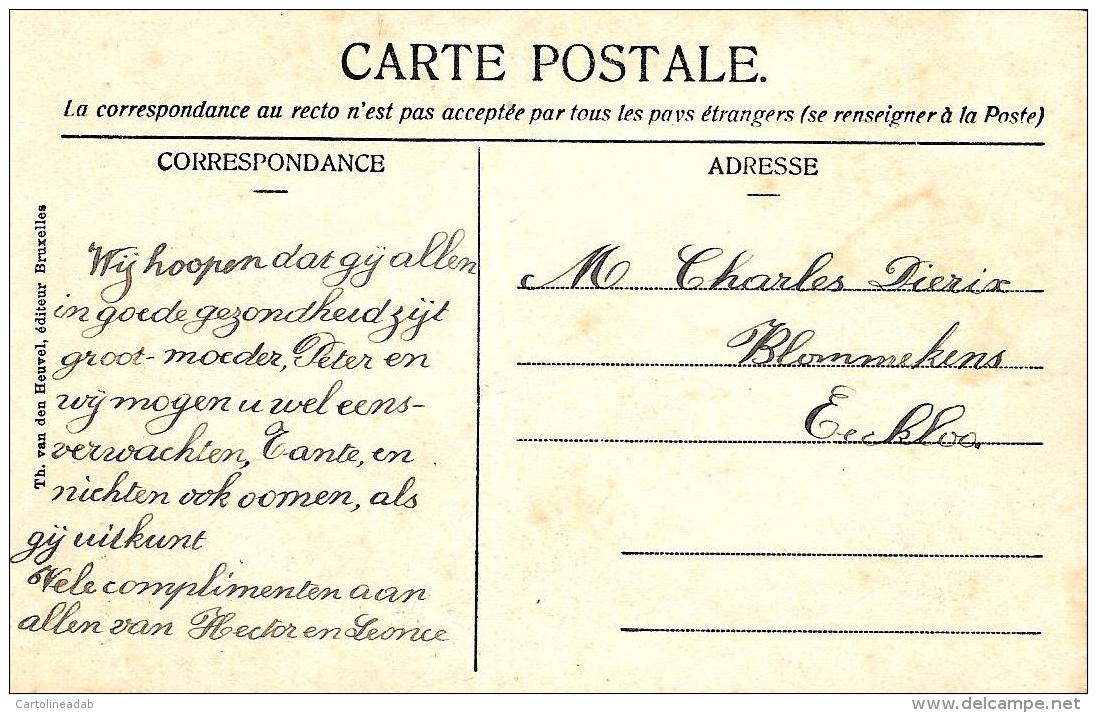 CARTE POSTALE.
La correspondance au recto n'est pas acceptée par tous les pays étrangers (se renseigner à la Poste)
CORRESPONDANCE
Wij hoopen dat gij allen
in goede gezondheid zijt
groot-moeder, Peter en
wij mogen u wel eens-
verwachten, Tante, en
nichten ook oomen, als
gij uitkunt
Vele complimenten aan
allen van Hector en Leonce
ADRESSE
M Charles Dierix
Blommekens
Eeckloo.
Th. van den Heuvel, éditeur Bruxelles
Cartolineadab
delcampe.net